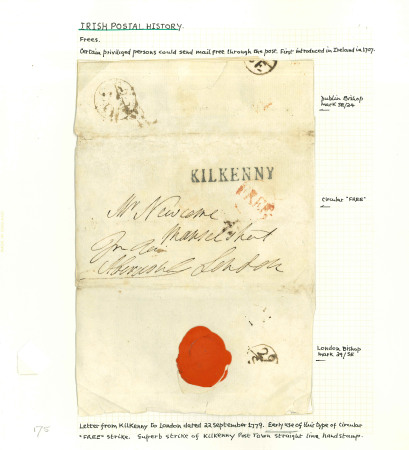 IRISH POSTAL HISTORY.
Frees.
Certain priviliged persons could send mail free through the post. First introduced in Ireland in 1707.
Dublin Bishop
mark SE/24
KILKENNY
Circular "FREE"
FREE
Mr Newcome
Mansel Street
London
London Bishop
mark 29/SE
Letter from Kilkenny to London dated 22 September 1779. Early use of this type of circular
"FREE" strike. Superb strike of Kilkenny Post Town straight line handstamp.
175